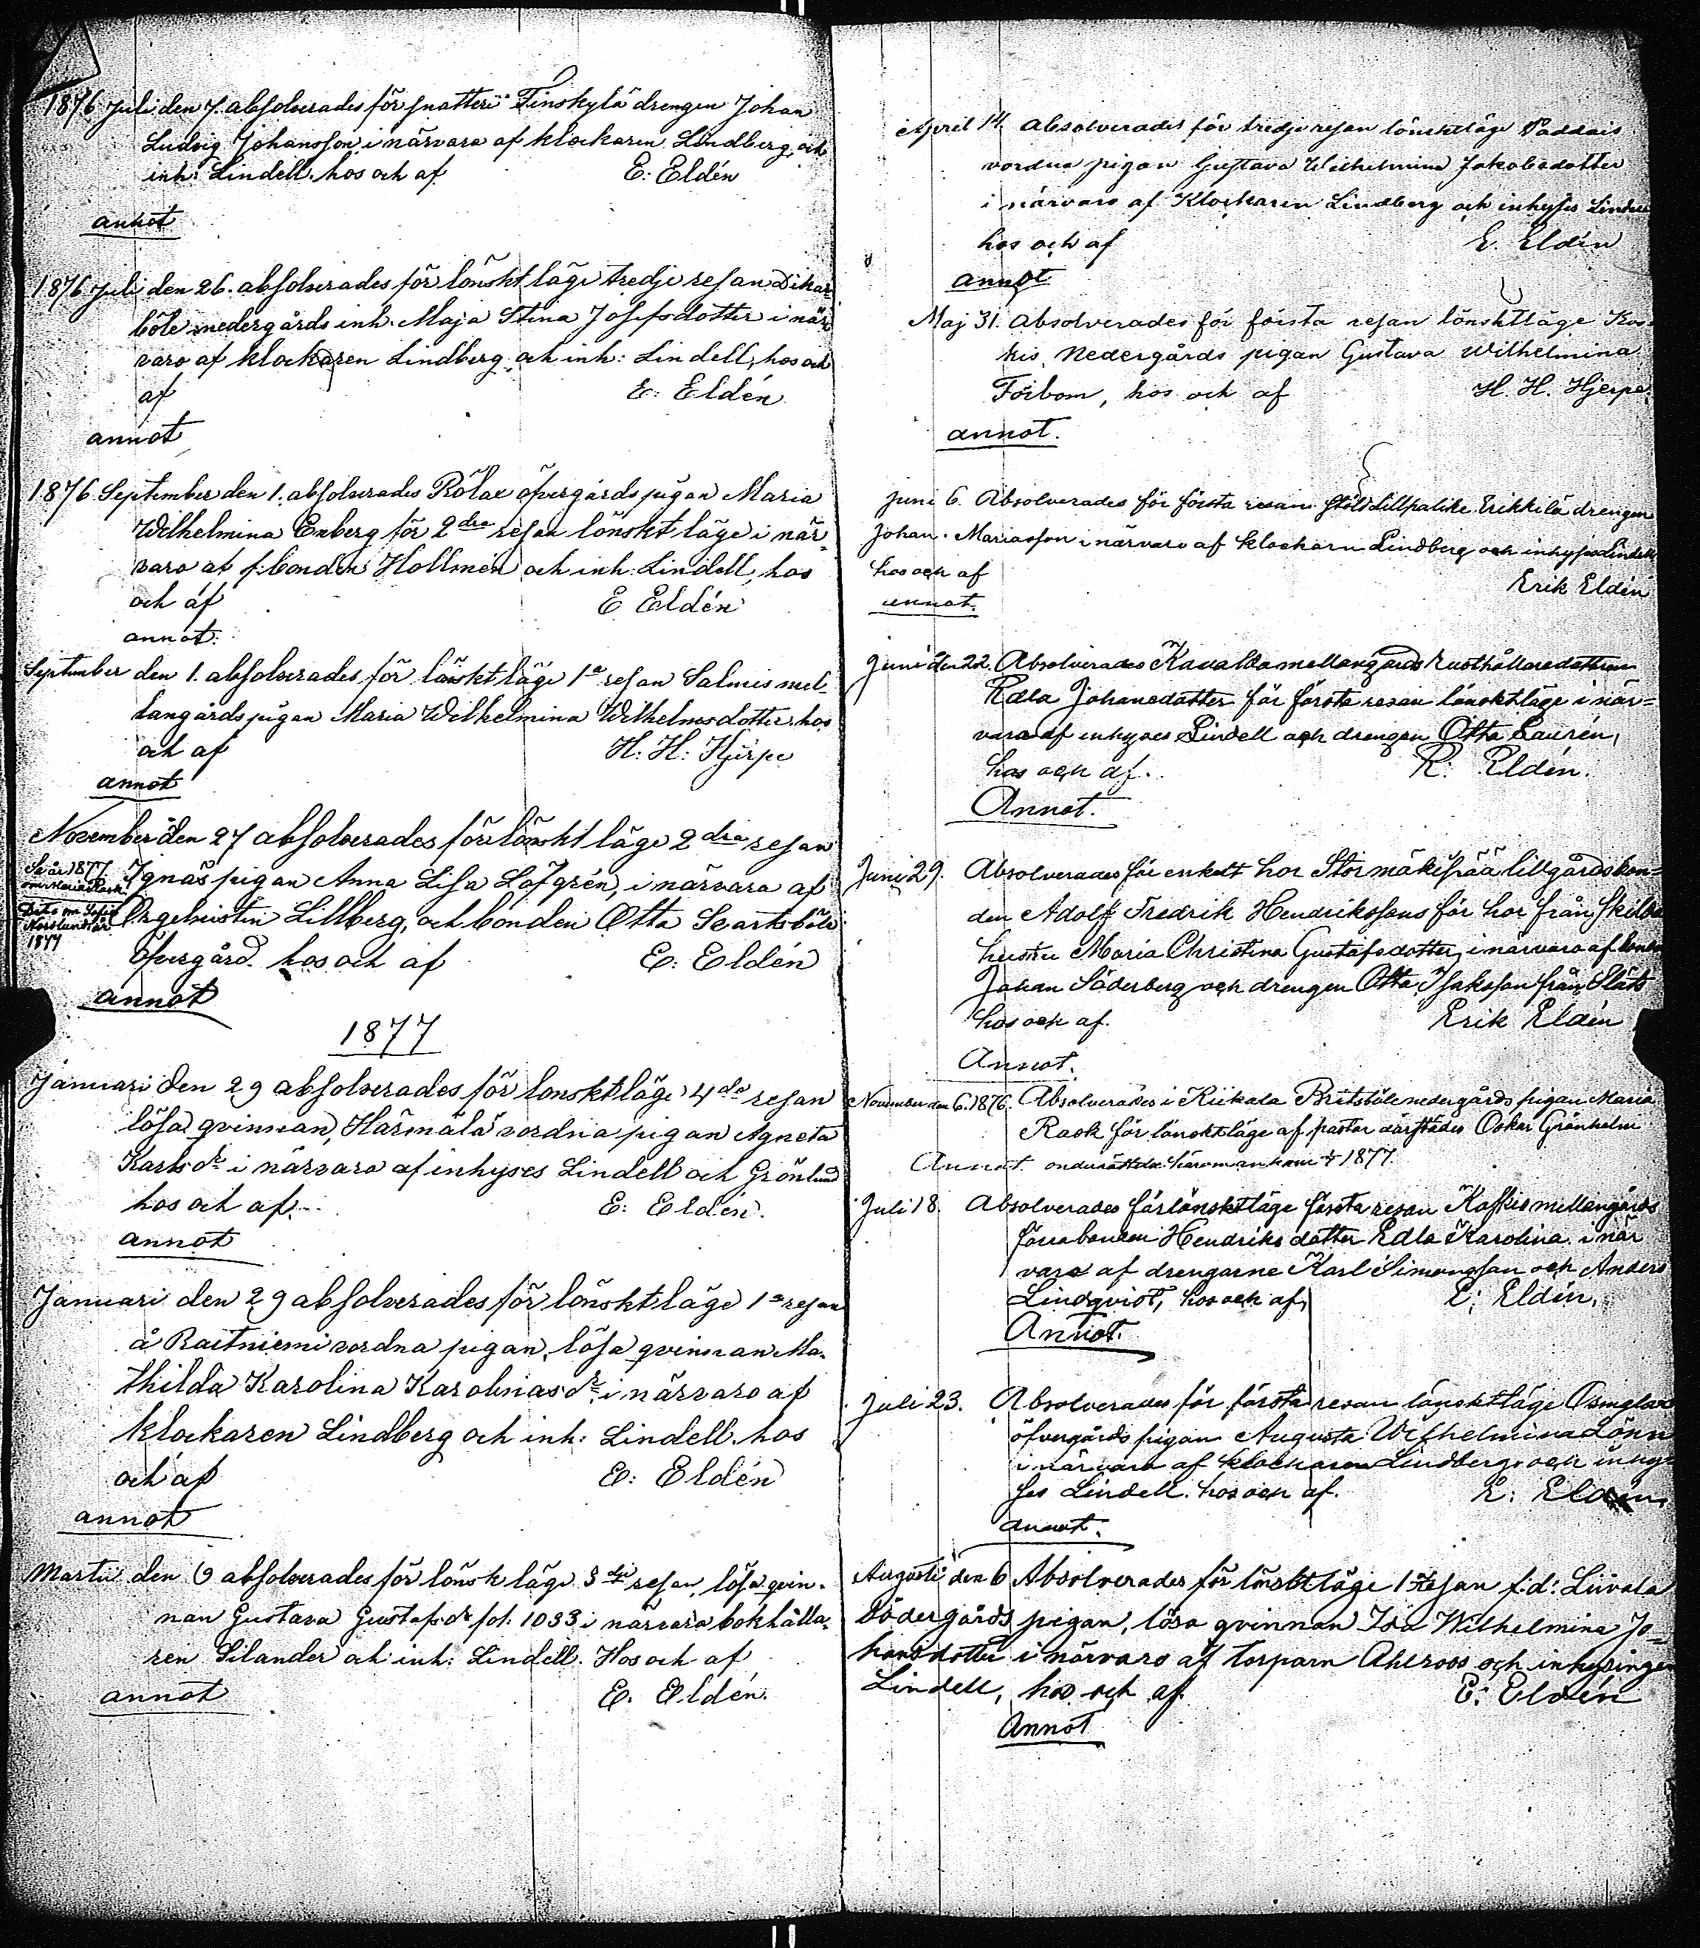 1876 Juli den 7. absolverades för snatteri Finskylä drengen Johan
Ludvig Johansson i närvara af klockaren Lindberg och
inh: Lindell. hos och af E: Eldén
annot
1876 Juli den 26. absolverades för lönskt läge tredje resan Dikar
böle nedergårds inh. Maja Stina Josefsdotter i när
varo af klockaren Lindberg och inh: Lindell, hos och
af E: Eldén
annot
1876 September den 1. absolverades Rölax öfvergårds pigan Maria
Wilhelmina Enberg för 2dra resan lönskt läge i när
varo af f. bonden Hollmén och inh: Lindell, hos
och af E Eldén
annot.
September den 1. absolverades för lönskt läge 1a resan Salmis mel
langårds pigan Maria Wilhelmina Wilhelmsdotter. hos
och af H: H: Hjerpe
annot
November den 27 absolverades för lönskt läge 2dra resan
Ignäs pigan Anna Lisa Löfgrén, i närvara af
Orgelnisten Lillberg, och bonden Otto Svartsböle
Öfvergård. hos och af E: Eldén
annot
1877
Januari den 29 absolverades för lönsktläge 4de resan
lösa qvinnan, Härmälä vordna pigan Agneta
Karlsdr i närvaro af inhyses Lindell och Grönlund
hos och af. E: Eldén.
annot
Januari den 29 absolverades för lönsktläge 1a resan
å Raitniemi vordna pigan, lösa qvinnan Ma-
thilda Karolina Karolinasdr i närvaro af
klockaren Lindberg och inh: Lindell. hos
och af E: Eldén
annot
Martii den 9 absolverades för lönsk läge 3dje resan lösa qvin-
nan Gustava Gustafsdr fol. 1033 i närvara bokhålla-
ren Silander och inh: Lindell. Hos och af
annot E. Eldén.
April 14. Absolverades för tredje resan lönsktläge Paddais
vordna pigan Gustava Wilhelmina Jakobsdotter
i närvaro af Klockaren Lindberg och inhyses Lindell
hos och af E. Eldén
annot
Maj 31. Absolverades för första resan lönsktläge Kos-
kis Nedergårds pigan Gustava Wilhelmina
Forbom, hos och af H. H. Hjerpe.
annot.
Juni 6. Absolverades för första resan stöld Erikkilä drengen
Johan Mariasson i närvaro af klockarn Lindberg och inhyses Lindell
hos och af Erik Eldén
annot.
Juni den 22. Absolverades Kavalda mellangårds rusthållaredottren
Edla Johansdotter för första resan lönsktläge i när-
vara af inhyses Lindell och drengen Otto Laurén,
hos och af. E: Eldén.
Annot.
Juni 29. Absolverades för enkelt hor Stormäkipää lillgårds bon-
den Adolf Fredrik Hendrikssons för hor från skilda
hustru Maria Christina Gustafsdotter, i närvaro af bonden
Johan Söderberg och drengen Otto Isaksson från Släts
hos och af. Erik Eldén
Annot.
November den 6. 1876. Absolverades i Kiikala Britsböle nedergårds pigan Maria
Rask för lönsktläge af pastor därstädes Oskar Grönholm
Annot. härom ankom 1877.
Juli 18. Absolverades för lönsktläge första resan Koskis mellangårds
förra bonden Hendriks dotter Edla Karolina i när
varo af drengarne Karl Simonsson och Anders
Lindqvist, hos och af E: Eldén.
Annot.
Juli 23. Absolverades för första resan lönsktläge Osmglax
öfvergårds pigan Augusta Wilhelmina Lönn
i närvara af klockaren Lindberg och inhy-
ses Lindell. hos och af. E: Eldén.
annot.
Augusti den 6 Absolverades för lönsktläge 1sta resan f:d: Liivala
Södergårds pigan, lösa qvinnan Ida Wilhelmina Jo-
hansdotter i närvaro af torparn Ahlroos och inhysingen
Lindell, hos och af E: Eldén
Annot